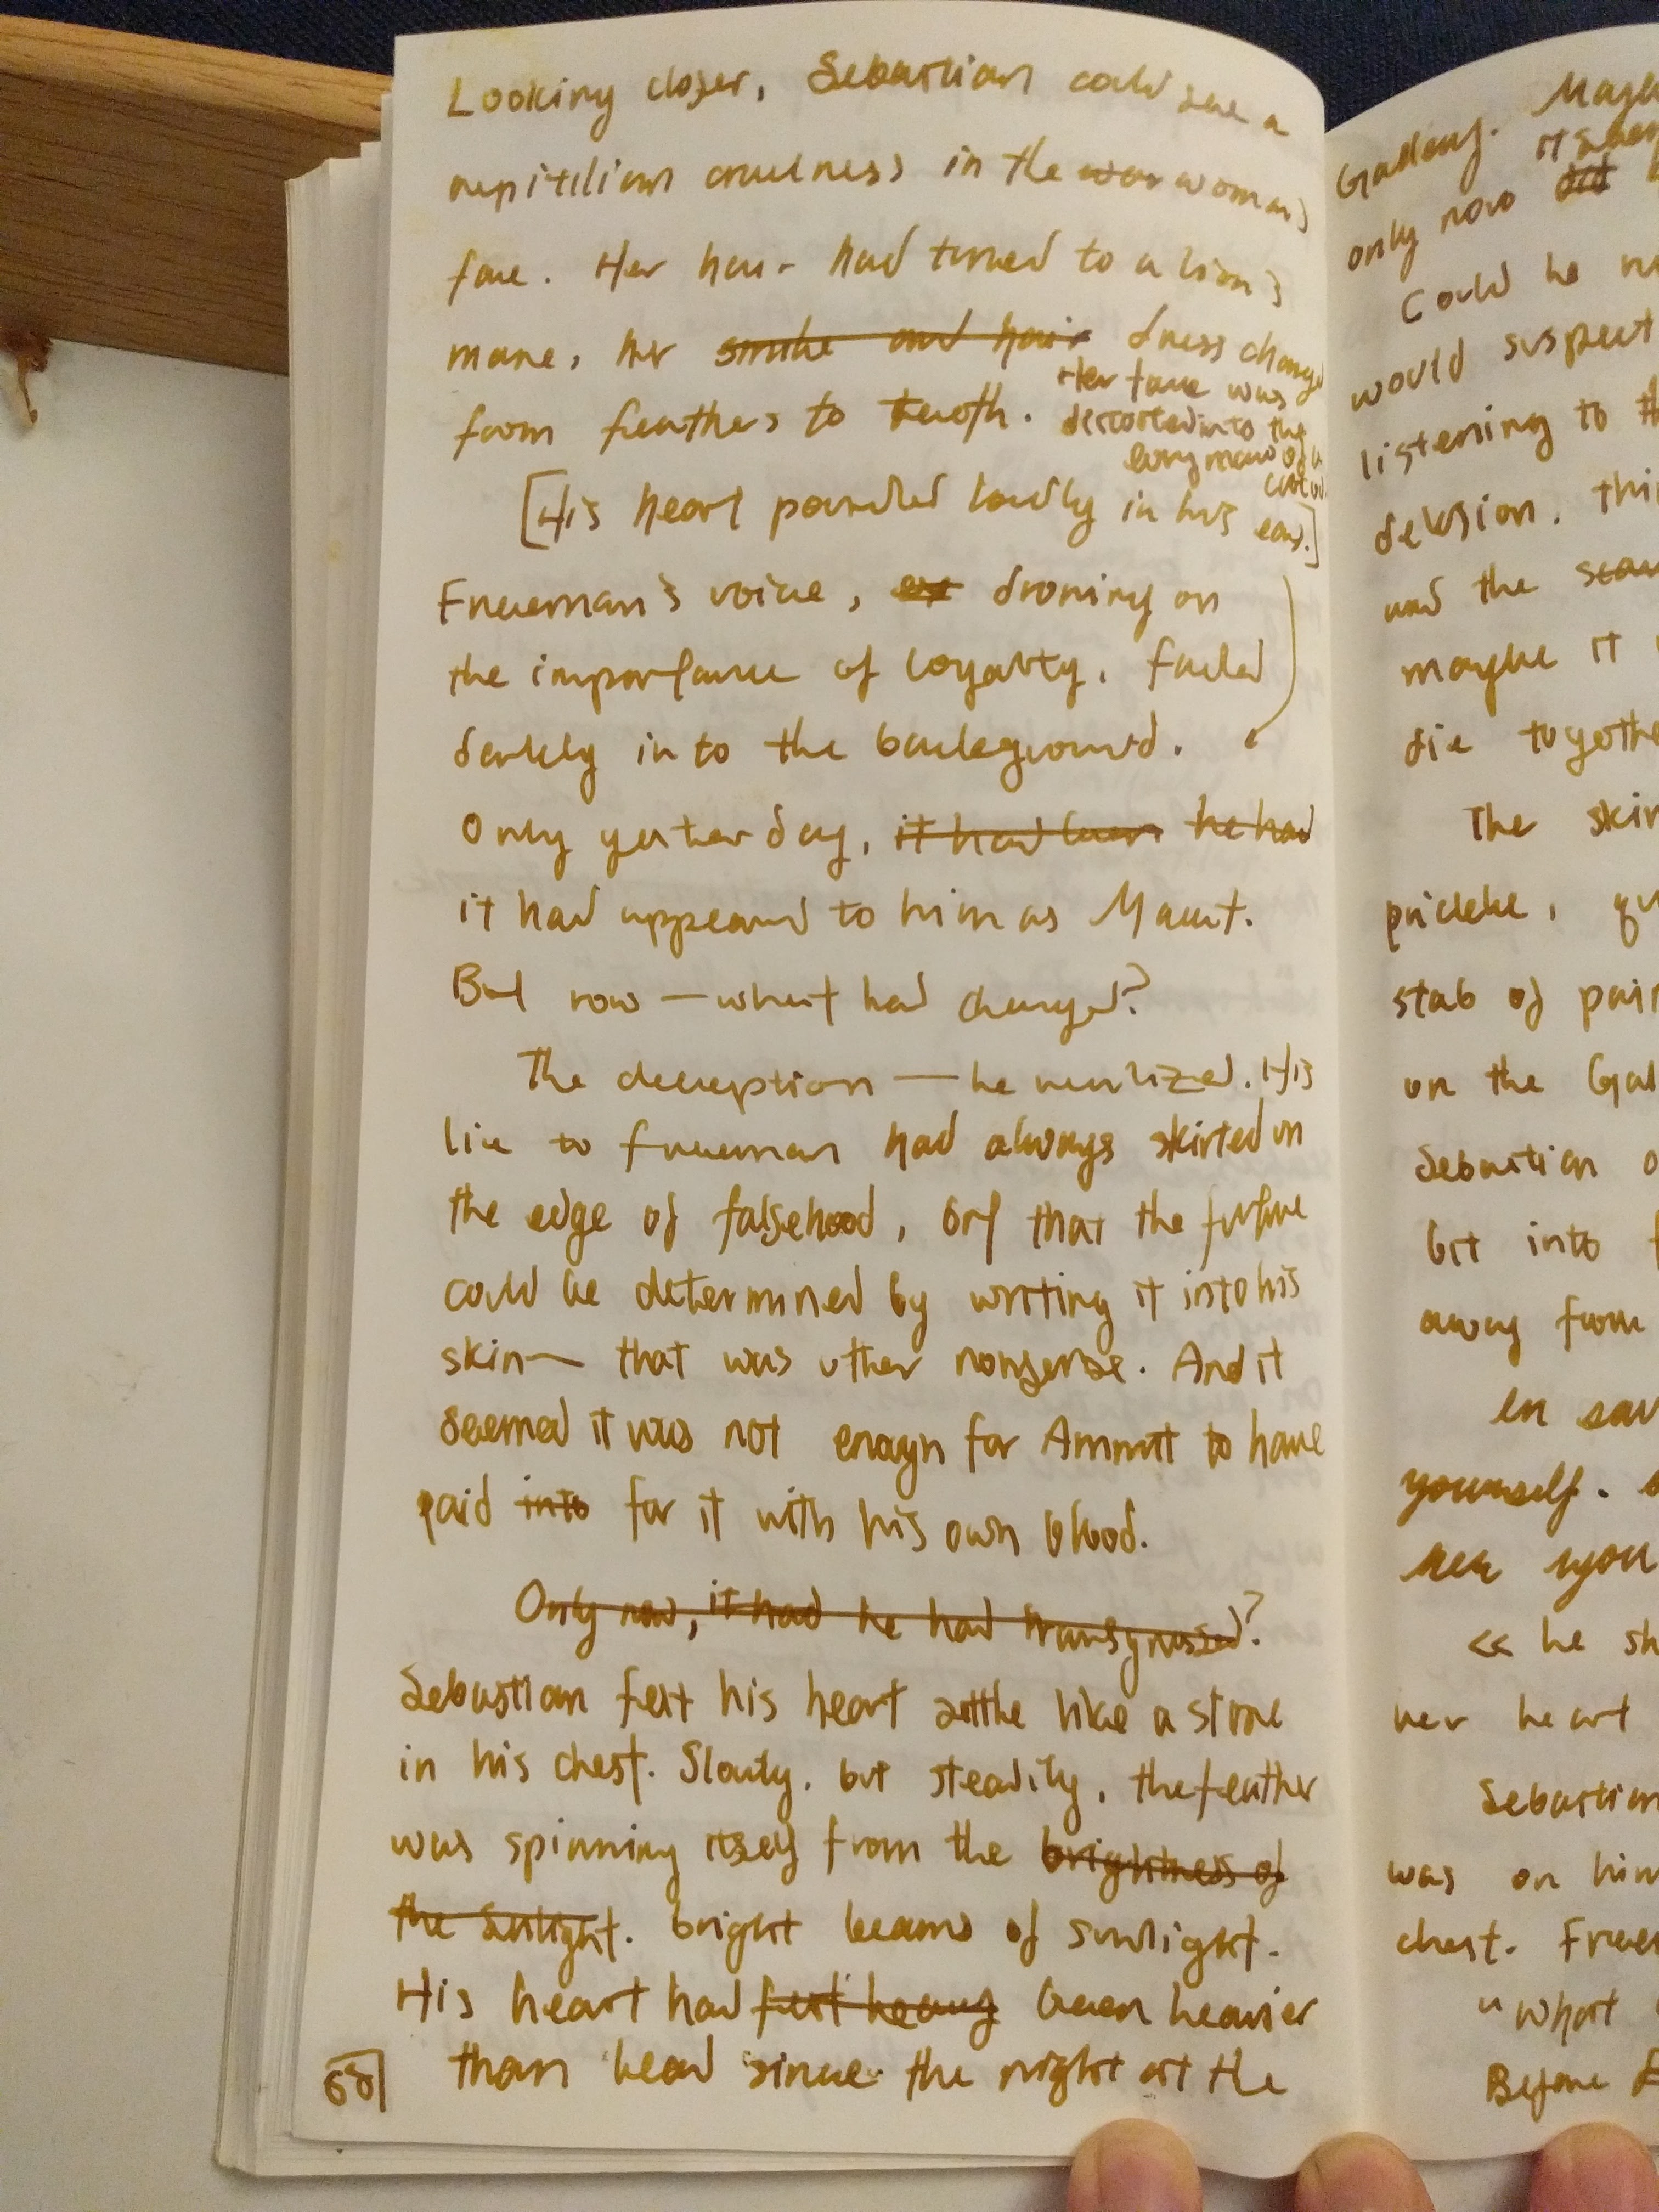 Looking closer, Sebastian could see a
reptilian cruelness in the woman's
face. Her hair had turned to a lion's
mane, her smile and hair dress changed
from feathers to teeth. Her face was
distorted into the
long maw of a
[His heart pounded loudly in his ears.]
Freeman's voice, droning on
the importance of loyalty, faded
darkly into the background.
Only yesterday, it had been he had
it had appeared to him as Maat.
But now — what had changed?
The deception — he realized. His
lie to Freeman had always skirted on
the edge of falsehood, but that the future
could be determined by writing it into his
skin — that was utter nonsense. And it
seemed it was not enough for Ammit to have
paid into for it with his own blood.
Only now, it had he had transgressed?
Sebastian felt his heart settle like a stone
in his chest. Slowly, but steadily, the feather
was spinning itself from the brightness of
the sunlight. bright beams of sunlight.
His heart had felt heavy been heavier
than lead since the night at the
68
Gallery.
it
only now but
Could he
would suspect
listening to
delusion.
and the
maybe it
die
The
prickle,
stab of
on the
Sebastian
bit into
away from
en
yourself.
her you
« he
her heart
Sebastian
was on him
chest.
"What
Before